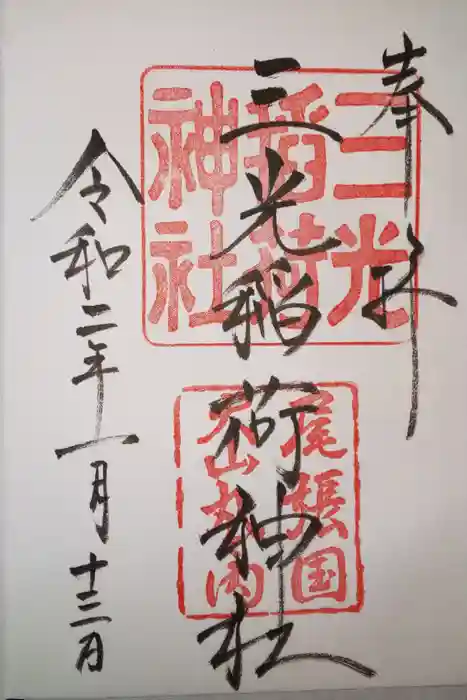 奉拝
三光稲荷神社
令和二年一月十三日
三光
稲荷
神社
尾張国
犬山城内